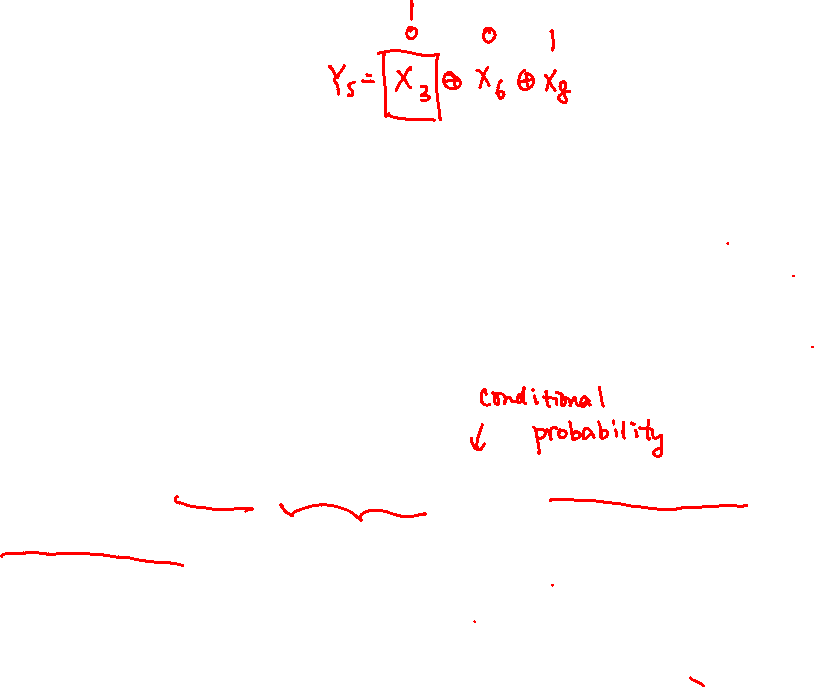 1
0 0 1
Y₅ = X₃ ⊕ X₆ ⊕ X₈
conditional
↓ probability